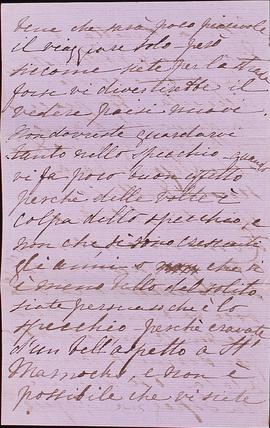 bene che sarà poco piacevole
il viaggiare solo però
siccome siete per la strada
forse vi divertirebbe il
vedere paesi nuovi.
Non dovreste guardarvi
tanto nello specchio questo
vi fa poco buon
perchè delle volte è
colpa dello specchio e
non che si sono
gli anni o che vi
è meno bello del solito
siate persuasi che è lo
specchio perchè eravate
d'un bell'aspetto a St
e non è
possibile che vi siete